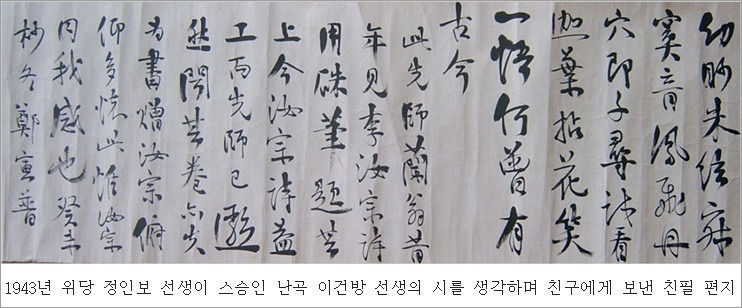 幻眇朱絃寂
寞音鳳飛丹
穴即尋試看
迦葉拈花笑
一悟何曾有
古今
此先師蘭翁昔
年見李汝宗詩
用硃筆題其
上今汝宗詩益
工而先師已
然閱其卷亦失
為書贈汝宗俯
仰多懷此惟汝宗
同我感也癸未
杪冬鄭寅普
1943년 위당 정인보 선생이 스승인 난곡 이건방 선생의 시를 생각하며 친구에게 보낸 친필 편지